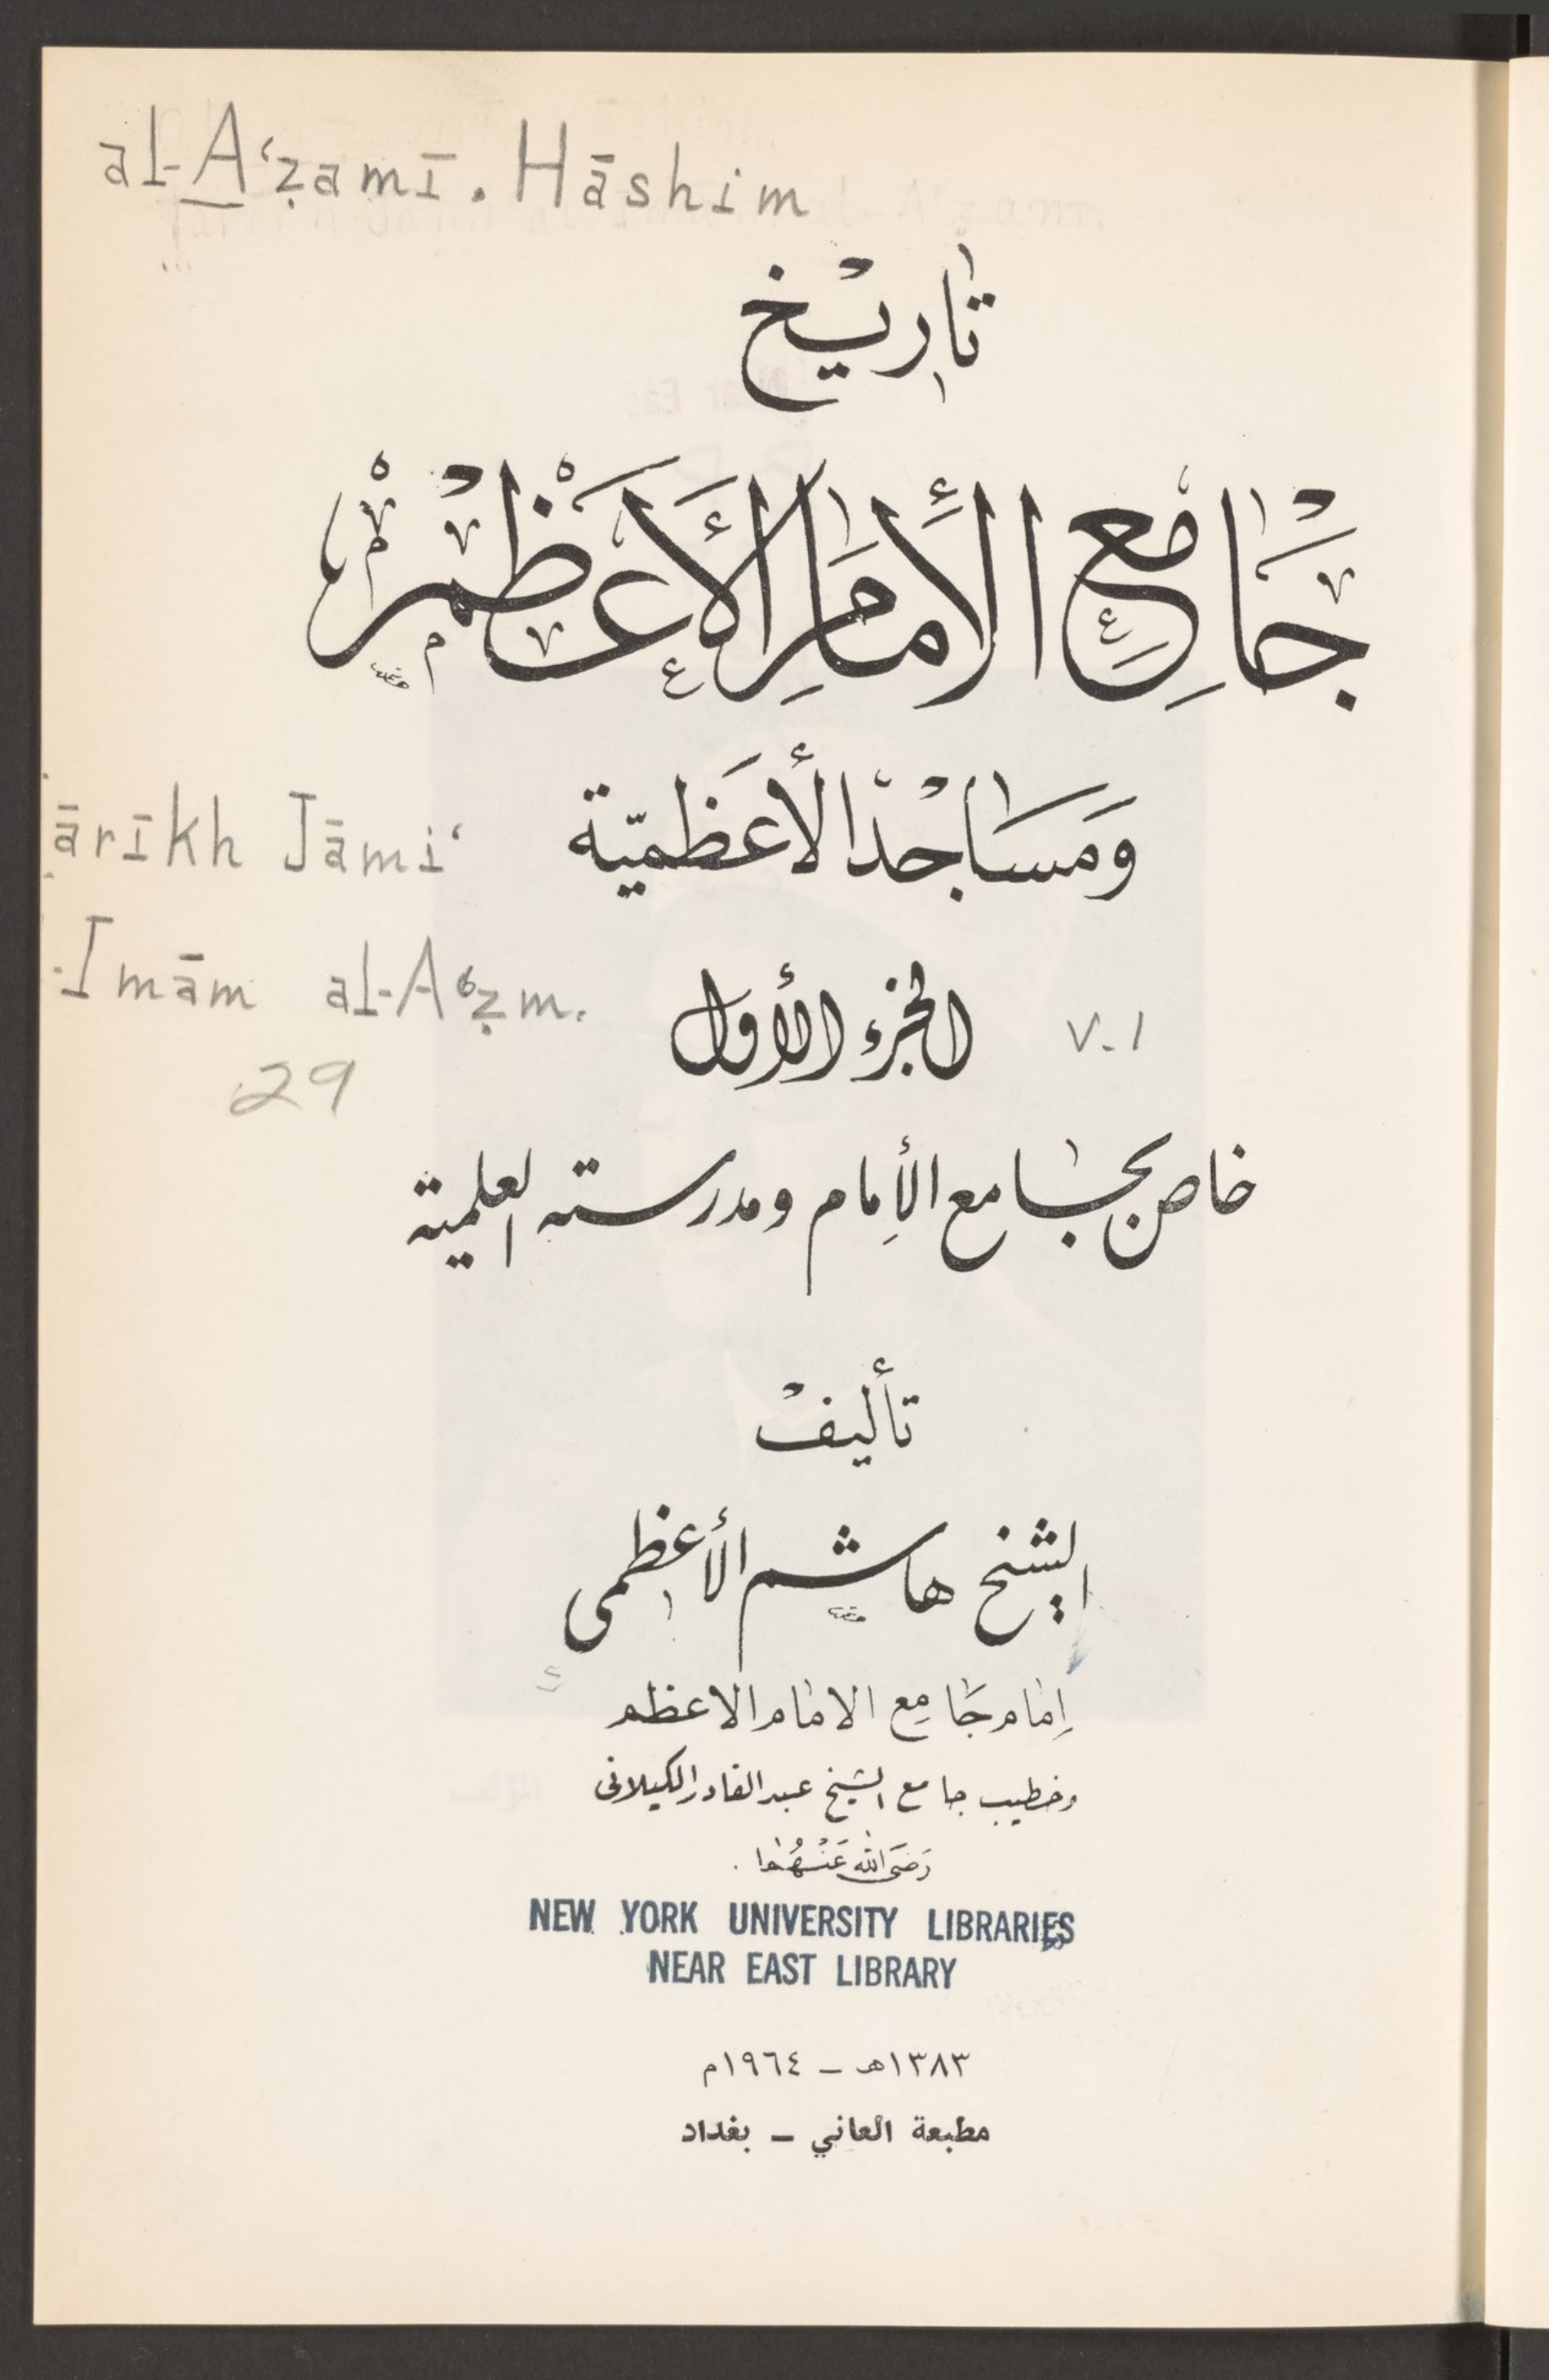 al-A‘ẓamī. Hāshim
تاريخ
جامع الإمام الأعظم
ومساجد الأعظمية
ārīkh Jāmi‘
Imām al-A‘ẓm.
الجزء الأول
v.1
29
خاص بجامع الإمام ومدرسته العلمية
تأليف
الشيخ هاشم الأعظمي
إمام جامع الامام الاعظم
وخطيب جامع الشيخ عبد القادر الكيلاني
رضي الله عنهما
NEW YORK UNIVERSITY LIBRARIES
NEAR EAST LIBRARY
١٣٨٣هـ – ١٩٦٤م
مطبعة العاني – بغداد